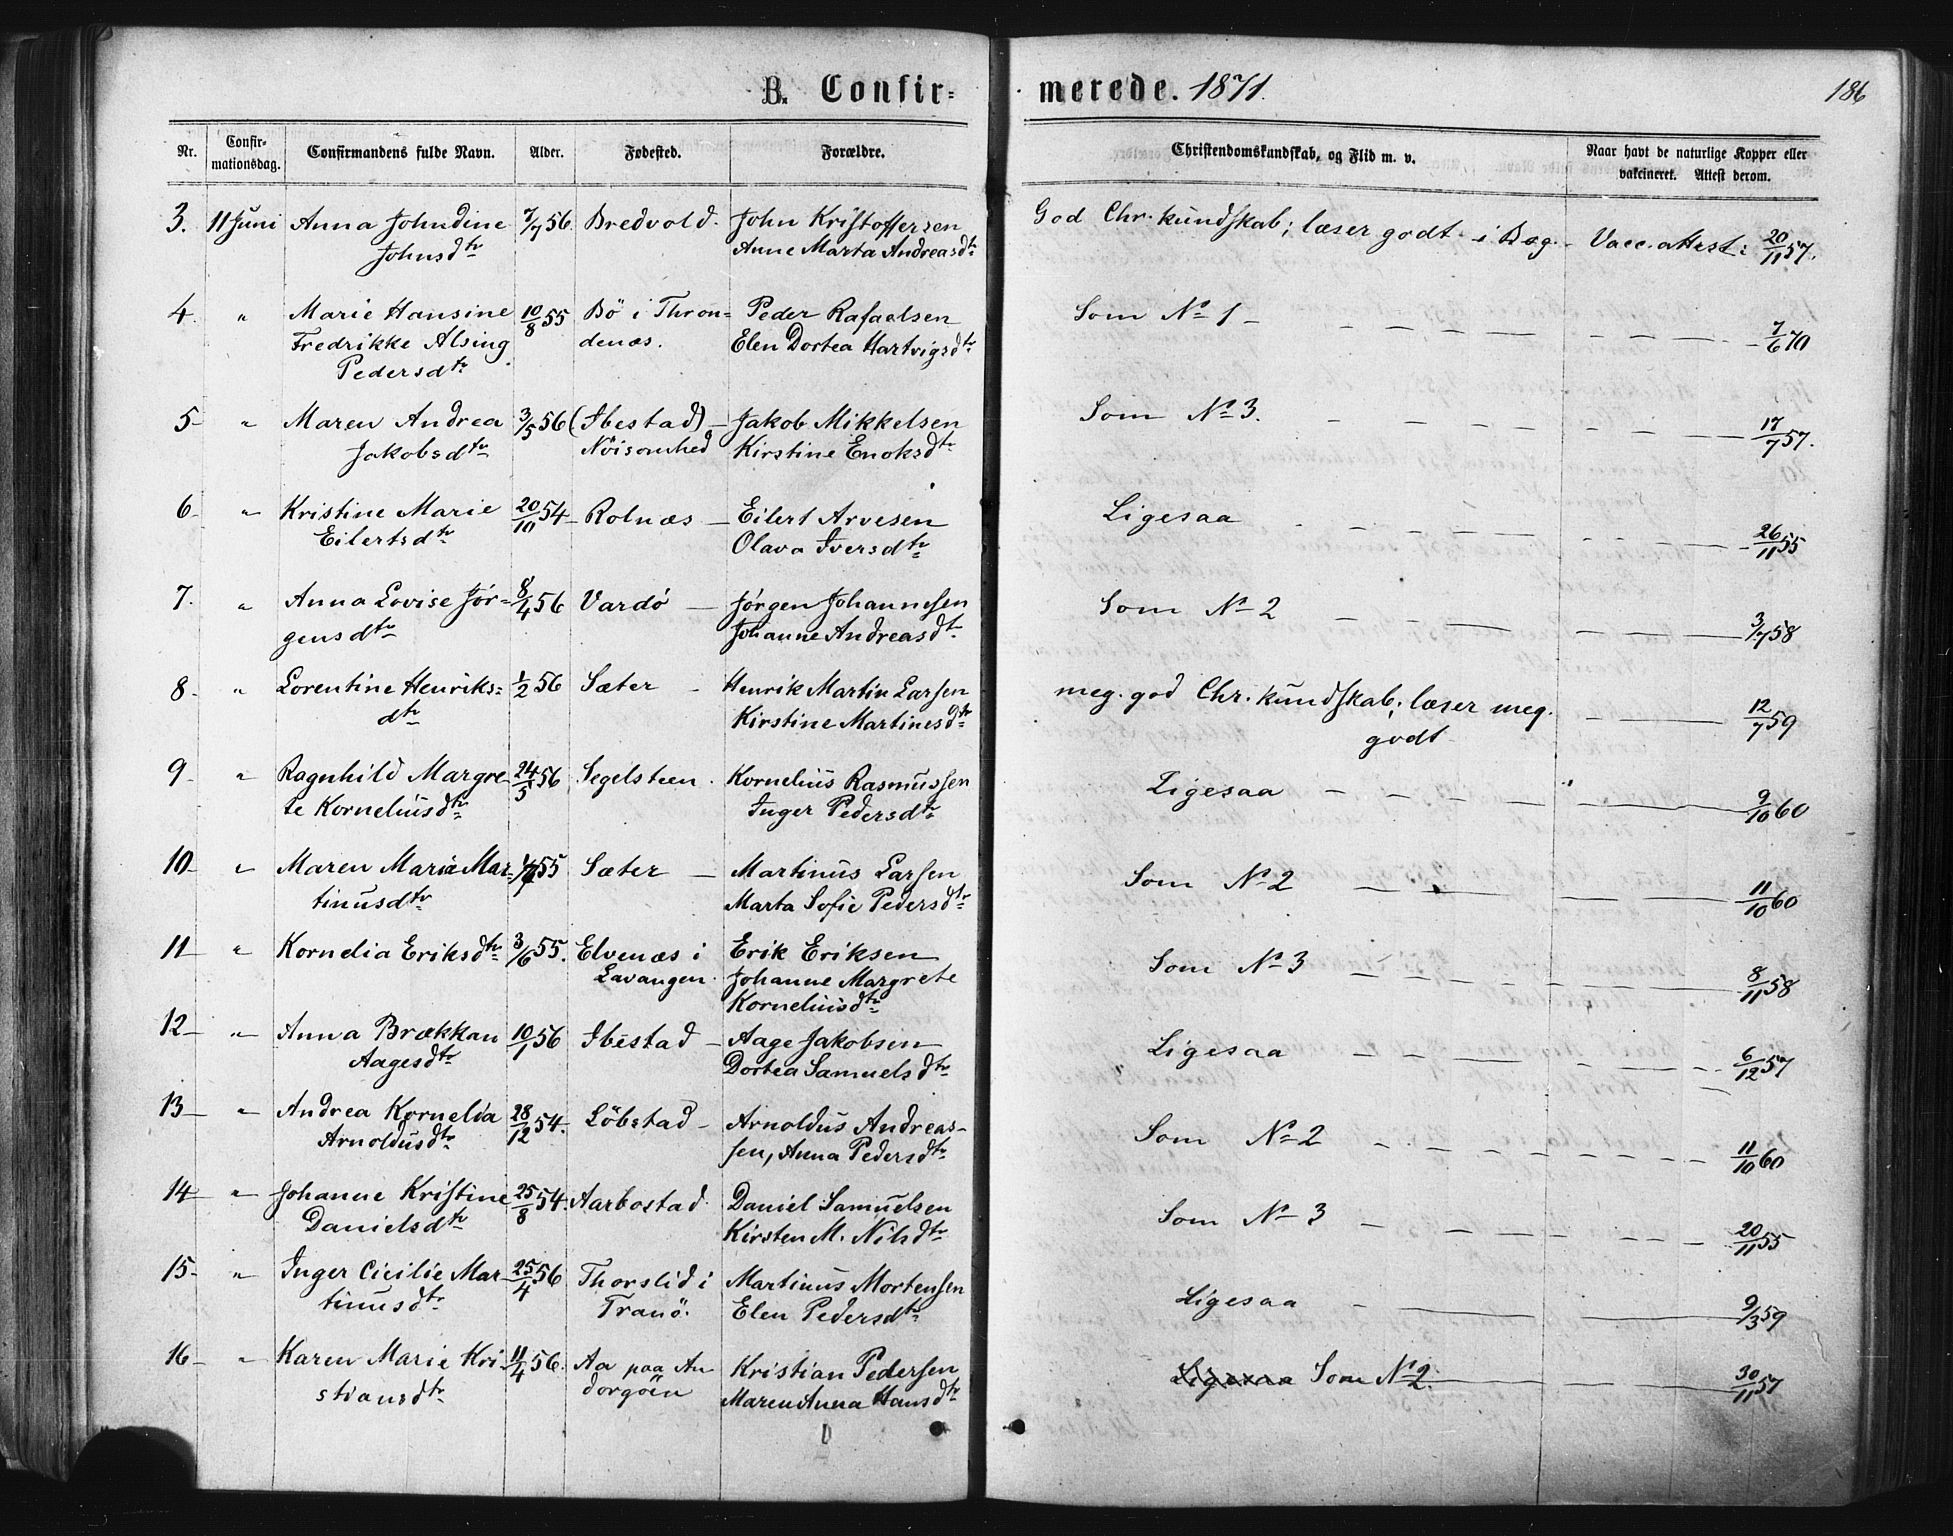 B. Confir= merede. 1871. 186
Nr. Confir-mationsdag. Confirmandens fulde Navn. Alder. Fødested. Forældre. Christendomskundskab, og Flid m. v. Naar havt de naturlige Kopper eller vakcineret. Attest derom.
3. 11 Juni Anna Johndine 7/7 56. Bredvold. John Kristoffersen God Chr. kundskab; læser godt i Bog. Vacc. attest: 20/11 57.
Johnsdtr Anne Marta Andreasdtr
4. " Marie Hansine 10/8 55 Bö i Thron- Peder Rafaelsen Som No 1 7/6 70
Fredrikke Alsing denæs. Elen Dortea Hartvigsdtr
Pedersdtr
5 " Maren Andrea 3/5 56 (Ibestad) Jakob Mikkelsen Som No 3. 17/7 57.
Jakobsdtr Nöisomhed Kirstine Enoksdtr
6 " Kristine Marie 20/10 54 Rolnæs Eilert Arvesen Ligesaa 26/11 55
Eilertsdtr Olava Iversdtr
7. " Anna Lovise Jør- 8/4 56 Vardö Jørgen Johannesen Som No 2 3/7 58
gensdtr Johanne Andreasdtr
8 " Lorentine Henriks- 1/2 56 Sæter Henrik Martin Larsen meg. god Chr. kundskab; læser meg. 12/7 59
dtr Kirstine Martinesdtr godt
9 " Ragnhild Margre- 24/5 56 Segelsteen. Kornelius Rasmussen Ligesaa 9/10 60
te Korneliusdtr Inger Pedersdtr
10 " Maren Maria Mar- 55 Sæter Martinus Larsen Som No 2 11/10 60
tinusdtr Marta Sofie Pedersdtr
11 " Kornelia Eriksdtr 3/6 55. Elvenæs i Erik Eriksen Som No 3 8/11 58
Lavangen Johanne Margrete
Korneliusdtr
12 " Anna Brækkan 10/1 56 Ibestad Aage Jakobsen Ligesaa 6/12 57
Aagesdtr Dortea Samuelsdtr
13 " Andrea Kornelia 28/12 54. Löbstad Arnoldus Andreas- Som No 2 11/10 60
Arnoldusdtr sen, Anna Pedersdtr
14 " Johanne Kristine 25/8 54. Aarbostad Daniel Samuelsen Som No 3 20/11 55
Danielsdtr Kirsten M. Nilsdtr
15 " Inger Cicilie Mar- 25/4 56 Thorslid i Martinus Mortensen Ligesaa 9/3 59
tinusdtr Tranö. Elen Pedersdtr
16 " Karen Marie Kri- 11/4 56. Aa paa An Kristian Pedersen Ligesaa Som No 2. 30/11 57
stiansdtr dorgöen Maren Anna Hansdtr